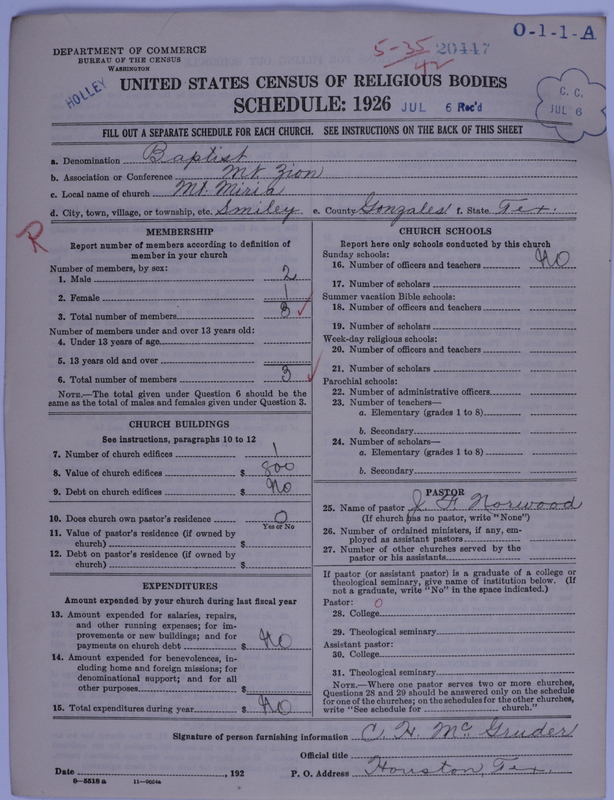 O-1-1-A
DEPARTMENT OF COMMERCE
BUREAU OF THE CENSUS
WASHINGTON
5-35 20447
42
HOLLEY
UNITED STATES CENSUS OF RELIGIOUS BODIES
SCHEDULE: 1926 JUL 6 Rec'd
C. C.
JUL 6
FILL OUT A SEPARATE SCHEDULE FOR EACH CHURCH. SEE INSTRUCTIONS ON THE BACK OF THIS SHEET
a. Denomination Baptist
b. Association or Conference Mt. Zion
c. Local name of church Mt. Miria
d. City, town, village, or township, etc. Smiley e. County Gonzales f. State Tex.
R
MEMBERSHIP
Report number of members according to definition of
member in your church
Number of members, by sex:
1. Male 2
2. Female 1
3. Total number of members 3
Number of members under and over 13 years old:
4. Under 13 years of age
5. 13 years old and over
6. Total number of members 3
NOTE.—The total given under Question 6 should be
same as the total of males and females given under Question 3.
CHURCH BUILDINGS
See instructions, paragraphs 10 to 12
7. Number of church edifices 1
8. Value of church edifices $ 800
9. Debt on church edifices $ No
10. Does church own pastor's residence 0
Yes or No
11. Value of pastor's residence (if owned by
church) $
12. Debt on pastor's residence (if owned by
church) $
EXPENDITURES
Amount expended by your church during last fiscal year
13. Amount expended for salaries, repairs,
and other running expenses; for im-
provements or new buildings; and for
payments on church debt $ No
14. Amount expended for benevolences, in-
cluding home and foreign missions; for
denominational support; and for all
other purposes $
15. Total expenditures during year $ No
CHURCH SCHOOLS
Report here only schools conducted by this church
Sunday schools:
16. Number of officers and teachers No
17. Number of scholars
Summer vacation Bible schools:
18. Number of officers and teachers
19. Number of scholars
Week-day religious schools:
20. Number of officers and teachers
21. Number of scholars
Parochial schools:
22. Number of administrative officers
23. Number of teachers—
a. Elementary (grades 1 to 8)
b. Secondary
24. Number of scholars—
a. Elementary (grades 1 to 8)
b. Secondary
PASTOR
25. Name of pastor J. F. Norwood
(If church has no pastor, write "None")
26. Number of ordained ministers, if any, em-
ployed as assistant pastors
27. Number of other churches served by the
pastor or his assistants
If pastor (or assistant pastor) is a graduate of a college or
theological seminary, give name of institution below. (If
not a graduate, write "No" in the space indicated.)
Pastor: 0
28. College
29. Theological seminary
Assistant pastor:
30. College
31. Theological seminary
NOTE.—Where one pastor serves two or more churches,
Questions 28 and 29 should be answered only on the schedule
for one of the churches; on the schedules for the other churches,
write "See schedule for church."
Signature of person furnishing information C. H. McGruder
Official title
Date , 192 P. O. Address Houston, Tex.
8-5518 a 11-9024a